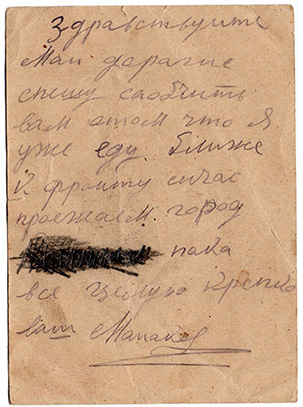 Здравствуите
Маи дорагие
спешу саобчить
вам отом что я
уже еду. Ближе
К фронту сичас
проежаем. город
пака
все целую крепко
ваш